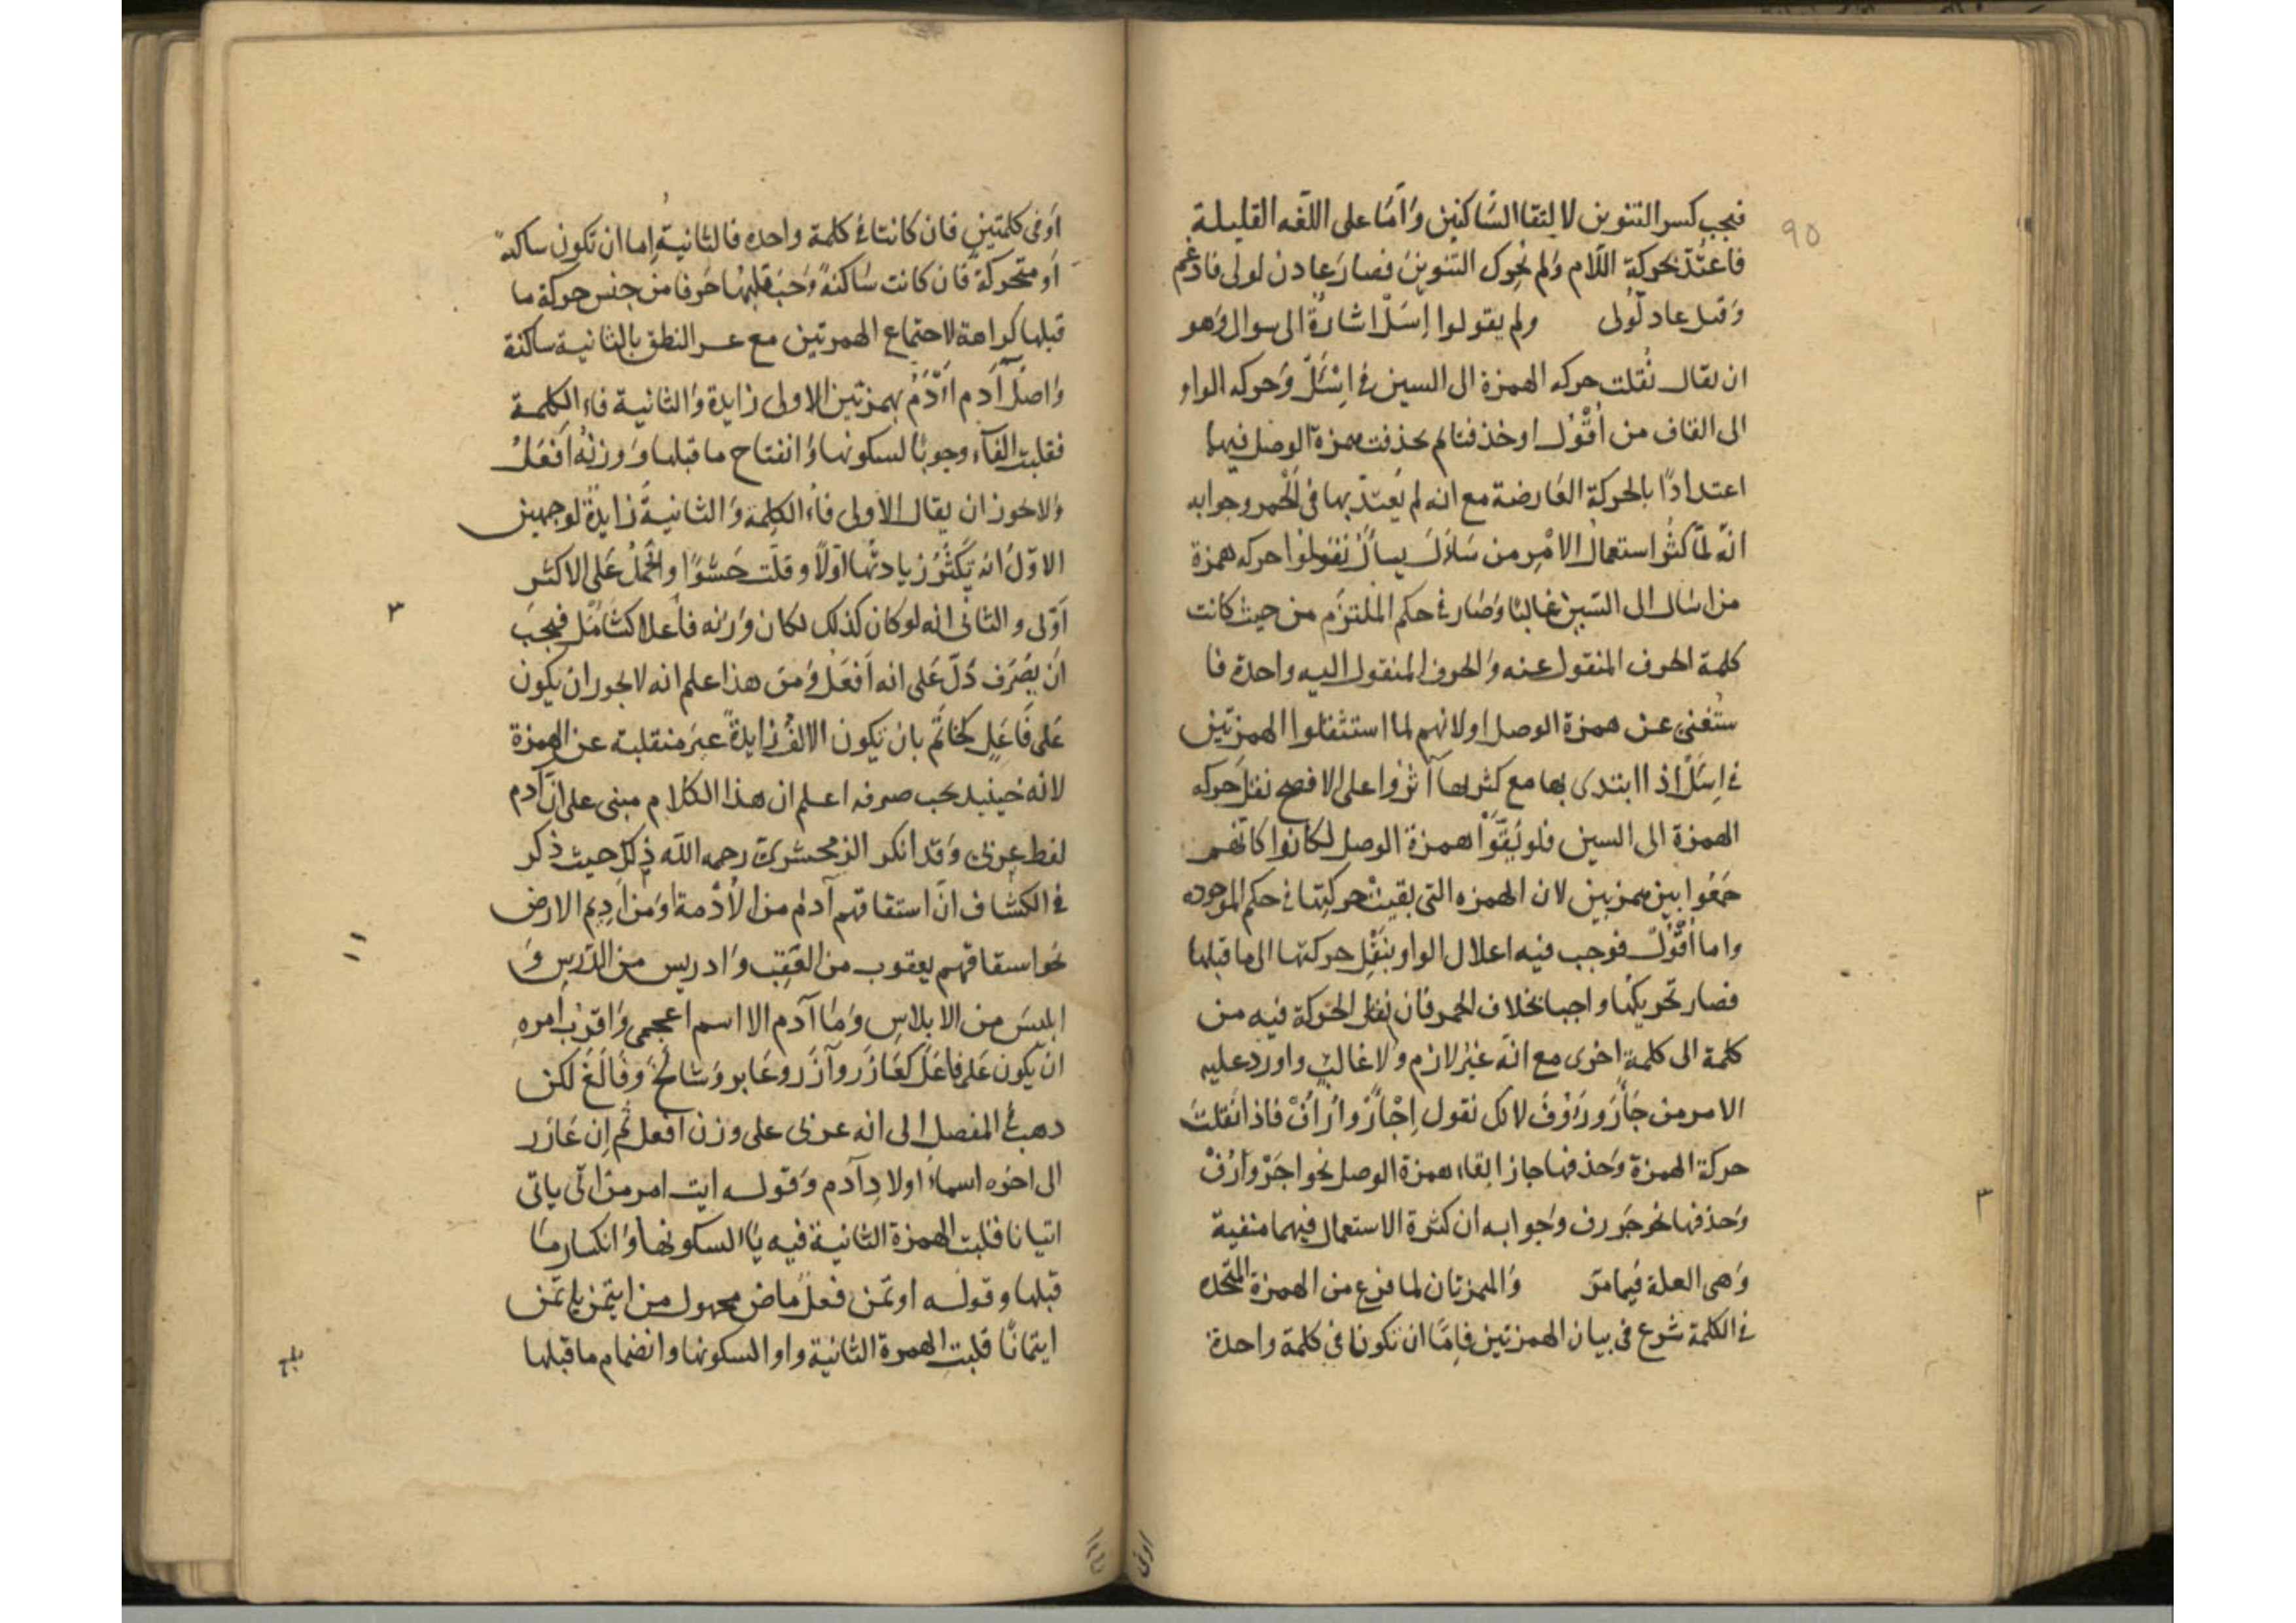 ٩٥
فيجب كسر التنوين لالتقا الساكنين وَامّا على اللغه القليلة
فاعتُدّ بحركة اللّام وَلم يُحرك التنوين فصار عادن لولى فادغم
وَقيل عاد لُّولى ولم يقولوا اِسَلْ اشارةً الى سوال وَهو
ان يقال نُقلت حركه الهمزة الى السين في اِسْئَلْ وَحركه الواو
الى القاف من اُقْوُل وحذفتا لم يحذفت همزة الوصل فيهما
اعتدادًا بالحركة العارضة مع انه لم يُعتدّ بها فى اَلَحْمر وجوابه
انّه لمّا كثُر استعمالُ الامْرِ من سَاَلَ يسأَلُ نقلوا حركه همزة
من اسال الى السّين غالبًا وَصار في حكم الملتزَم من حيث كانت
كلمة الحرف المنقول عنه وَالحرف المنقول اليه واحدة فا
ستُغنى عن همزة الوصل اولانهم لما استثقلوا الهمزتين
في اِسَلْ اذا ابتدى بها مع كثرتها آثروا على الافصح نقل حركه
الهمزة الى السين فلو بَقَّوْا همزة الوصل لكانوا كانّهم
جَمَعُوا بين همزتين لان الهمزه التى بقيتْ حركتها في حكم الموجوده
واما اُقْوُل فوجب فيه اعلال الواو بنَقْلِ حركتها الى ما قبلها
فصار تحريكها واجبا بخلاف الحمر فان نقل الحركة فيه من
كلمة الى كلمة اخرى مع انّه غيْر لازم ولا غالب واورد عليه
الامر من جَأَرَ ورَؤُفَ لانك تقول اِجْأَرْ وارْأَفْ فاذا نقلت
حركة الهمزة وَحذفها جاز ابقاء همزة الوصل نحو اجَرْ وَارَفْ
وَحذفها نحو جَر ورف وَجوابه ان كثرة الاستعمال فيهما منفية
وَهى العلة فيما مرّ وَالهمزتان لما فرغ من الهمزة المتحده
في الكلمة شرع فى بيان الهمزتين فامّا ان تكونا في كلمة واحدة
٣
اوفى
اَو فى كلمتين فان كانتا في كلمة واحده فالثانية اِما ان تكون ساكنة
اَو متحركة فان كانت سَاكنةً وَجَبَ قلبُها حَرفا من جنس حركة ما
قبلها كراهة لاحتماع الهمزتين مع عسر النطق بالثانية ساكنة
وَاصل آدم اَأْدَمُ بهمزتين الاولى زايدة وَالثانية فاء الكلمة
فقلبت الفاً وجوبًا لسكونها وَانفتاح ما قبلها وَوزنُه اَفْعَلُ
وَلا يجوز ان يقال الأولى فاء الكلمة وَالثانيةُ زايدةٌ لوجهين
الاوّل انه يَكثُرُ زيادتُها اوّلًا وقلّت حَشْوًا والحَمْلُ عَلى الاكثر
اَوْلى والثانى انه لو كان كذلك لكان وَزنه فاعلا كشَامَل فيجبَ
ان يصْرَف دُلّ عَلى انه اَفعَل وَمن هذا علم انه لا يجوز ان يكون
عَلى فَاعَلٍ كخَاتَم بان تكون الالف زايدةً غير منقلبة عن الهمزة
لانه حينيد يجب صرفه اعلم ان هذا الكلام مبنى على ان آدم
لفظ عربى وَقد انكر الزمخشرىّ رحمه اللّه ذلك حيث ذكر
في الكشاف انّ استقاقهم آدمَ من الأُدْمة اَو من اَدِيم الارض
نحو استقاقهم يعقوب من العَقِب وَادريس من الدّرسِ وَ
ابليسَ من الابلاسِ وَمَا آدم الا اسم اعجمى وَاقرب اَمره
ان يكون عَلى فاعَلَ كعَازَر وآزَر وعَابر وَشالَخ وَفَالَغ لكن
دهب في المفصل الى انه عربى على وزن افعل ثم اِن عَازَر
الى اخره اسماءُ اولادِ آدم وَقوله ايت امر من اتى ياتى
اتيانا فقلبت الهمزة الثانية فيه ياء السكونها وَانكسار ما
قبلها وقوله اوتمن فعل ماض مجهول من ايتمن ياتمن
ايتمانًا قلبت الهمرة الثانية واو السكونها وانضمام ما قبلها
٣
بلغ